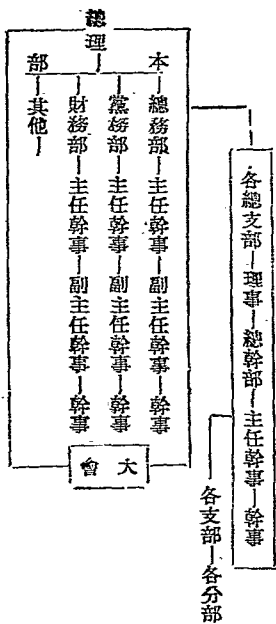 總理
本部
總務部—主任幹事—副主任幹事—幹事
黨務部—主任幹事—副主任幹事—幹事
財務部—主任幹事—副主任幹事—幹事
其他—
大會
各總支部—理事—總幹部—主任幹事—幹事
各支部—各分部